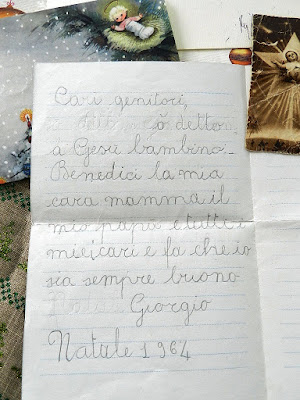 Cari genitori,
ò detto
a Gesù bambino.
Benedici la mia
cara mamma il
mio papà e tutti i
miei cari e fa che io
sia sempre buono
Giorgio
Natale 1964